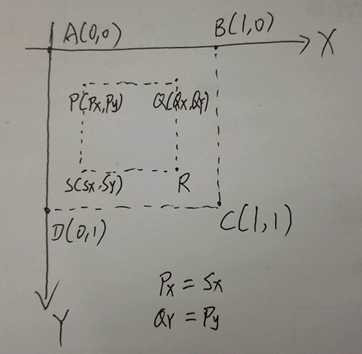 A(0,0) B(1,0)
X
P(Px,Py) Q(Qx,Qy)
S(Sx,Sy) R
D(0,1) C(1,1)
Px = Sx
Qy = Py
Y